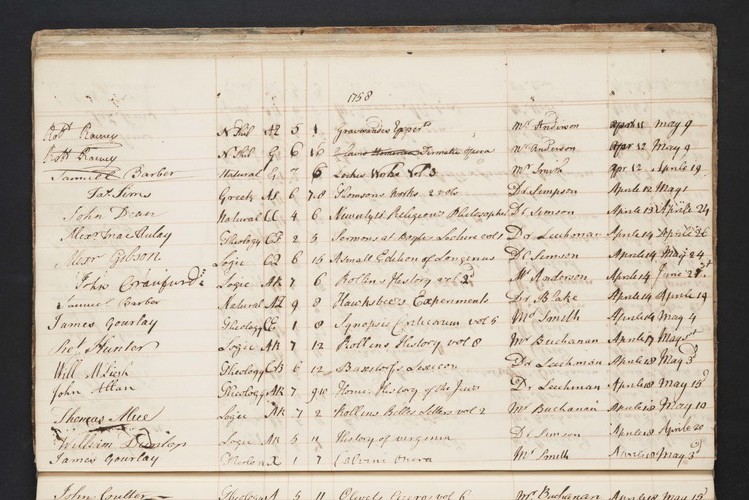 1758
Robt Rainey N Phil AL 5 1 Gravesandes Experts Mr Anderson April 11 May 9
Robt Rainey N Phil G 6 16 Firmetie Opera Mr Anderson Apr 12 May 9
Samuel Barber Natural E 7 6 Lockes Works Vol 3 Mr Smith Apr 12 Aprile 19
Jas. Sims Greek A 6 7.8 Works 2 vols Dr Simpson Aprile 12 May 1
John Dean Natural CC 4 6 Religious Philosopher Dr Simson Aprile 13 Aprile 24
Alexr MacAulay Theology CF 2 5 Sermons at Boyles Lecture vol 1 Dr Leechman Aprile 14 Aprile 26
Alexr Gibson Logic CQ 6 15 A small Edition of Longinus Dr Simson Aprile 14 May 24
John Craufurd Logic AK 7 6 Rollins History vol 2d Mr Anderson Aprile 14 June 2
Samuel Barber Natural AH 9 8 Hawksbees Experiments Dr Blake Aprile 14 Aprile 19
James Gourlay Theology CE 1 8 Synopsis Criticorum vol 5 Mr Smith Aprile 14 May 4
Hunter Logic AK 7 12 Rollins History vol 8 Mr Buchanan Aprile 17 May
Will Theology CB 6 12 Buxtorfs Lexicon Dr Leechman Aprile 18 May 3d
John Allan Theology AK 7 9 10 Home History of the Jews Dr Leechman Aprile 18 May 15
Thomas Alice Logic AK 7 2 Rollins Belles Lettres vol 2 Mr Buchanan Aprile 18 May 10
William Dunlop Logic AK 5 11 History of virginia Dr Simson Aprile 18 Aprile 20
James Gourlay X 1 7 Calvini Opera Mr Smith Aprile 18 May 3d
John Coulter 5 11 vol 6 Mr Buchanan May 15